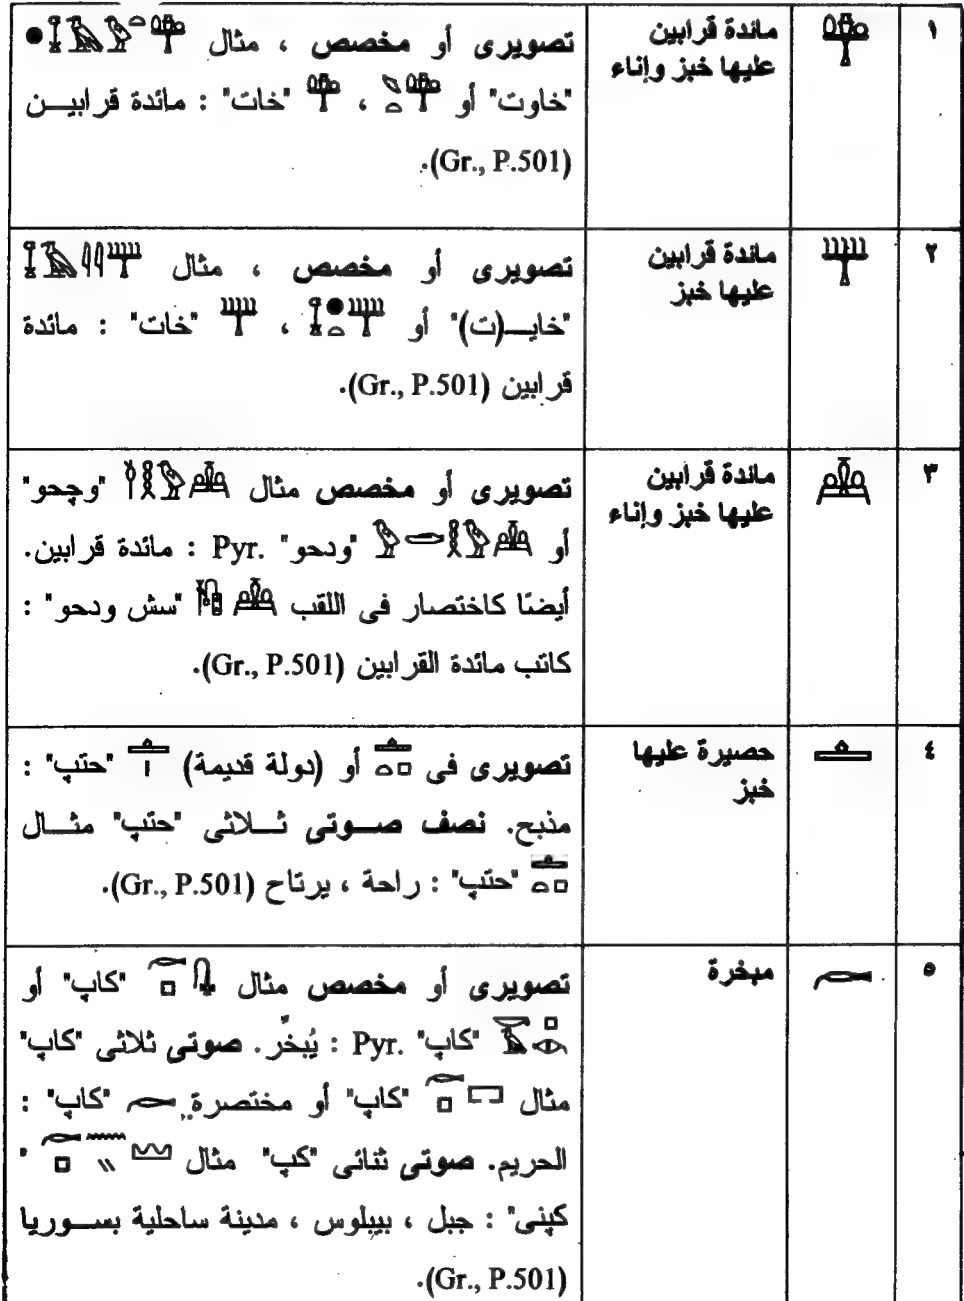 ١ مائدة قرابين تصويرى أو مخصص ، مثال
عليها خبز وإناء "خاوت" أو ، "خات" : مائدة قرابيــن
(Gr., P.501).
٢ مائدة قرابين تصويرى أو مخصص ، مثال
عليها خبز "خايــ(ت)" أو ، "خات" : مائدة
قرابين (Gr., P.501).
٣ مائدة قرابين تصويرى أو مخصص مثال "وچحو"
عليها خبز وإناء أو "ودحو" Pyr. : مائدة قرابين.
أيضًا كاختصار فى اللقب "سش ودحو" :
كاتب مائدة القرابين (Gr., P.501).
٤ حصيرة عليها تصويرى فى أو (دولة قديمة) "حتپ" :
خبز مذبح. نصف صــوتى ثــلاثى "حتپ" مثــال
"حتپ" : راحة ، يرتاح (Gr., P.501).
٥ مبخرة تصويرى أو مخصص مثال "كاپ" أو
"كاپ" Pyr. : يُبخِّر. صوتى ثلاثى "كاپ"
مثال "كاپ" أو مختصرة "كاپ" :
الحريم. صوتى ثنائى "كپ" مثال "
كپنى" : جبل ، بيبلوس ، مدينة ساحلية بســوريا
(Gr., P.501).